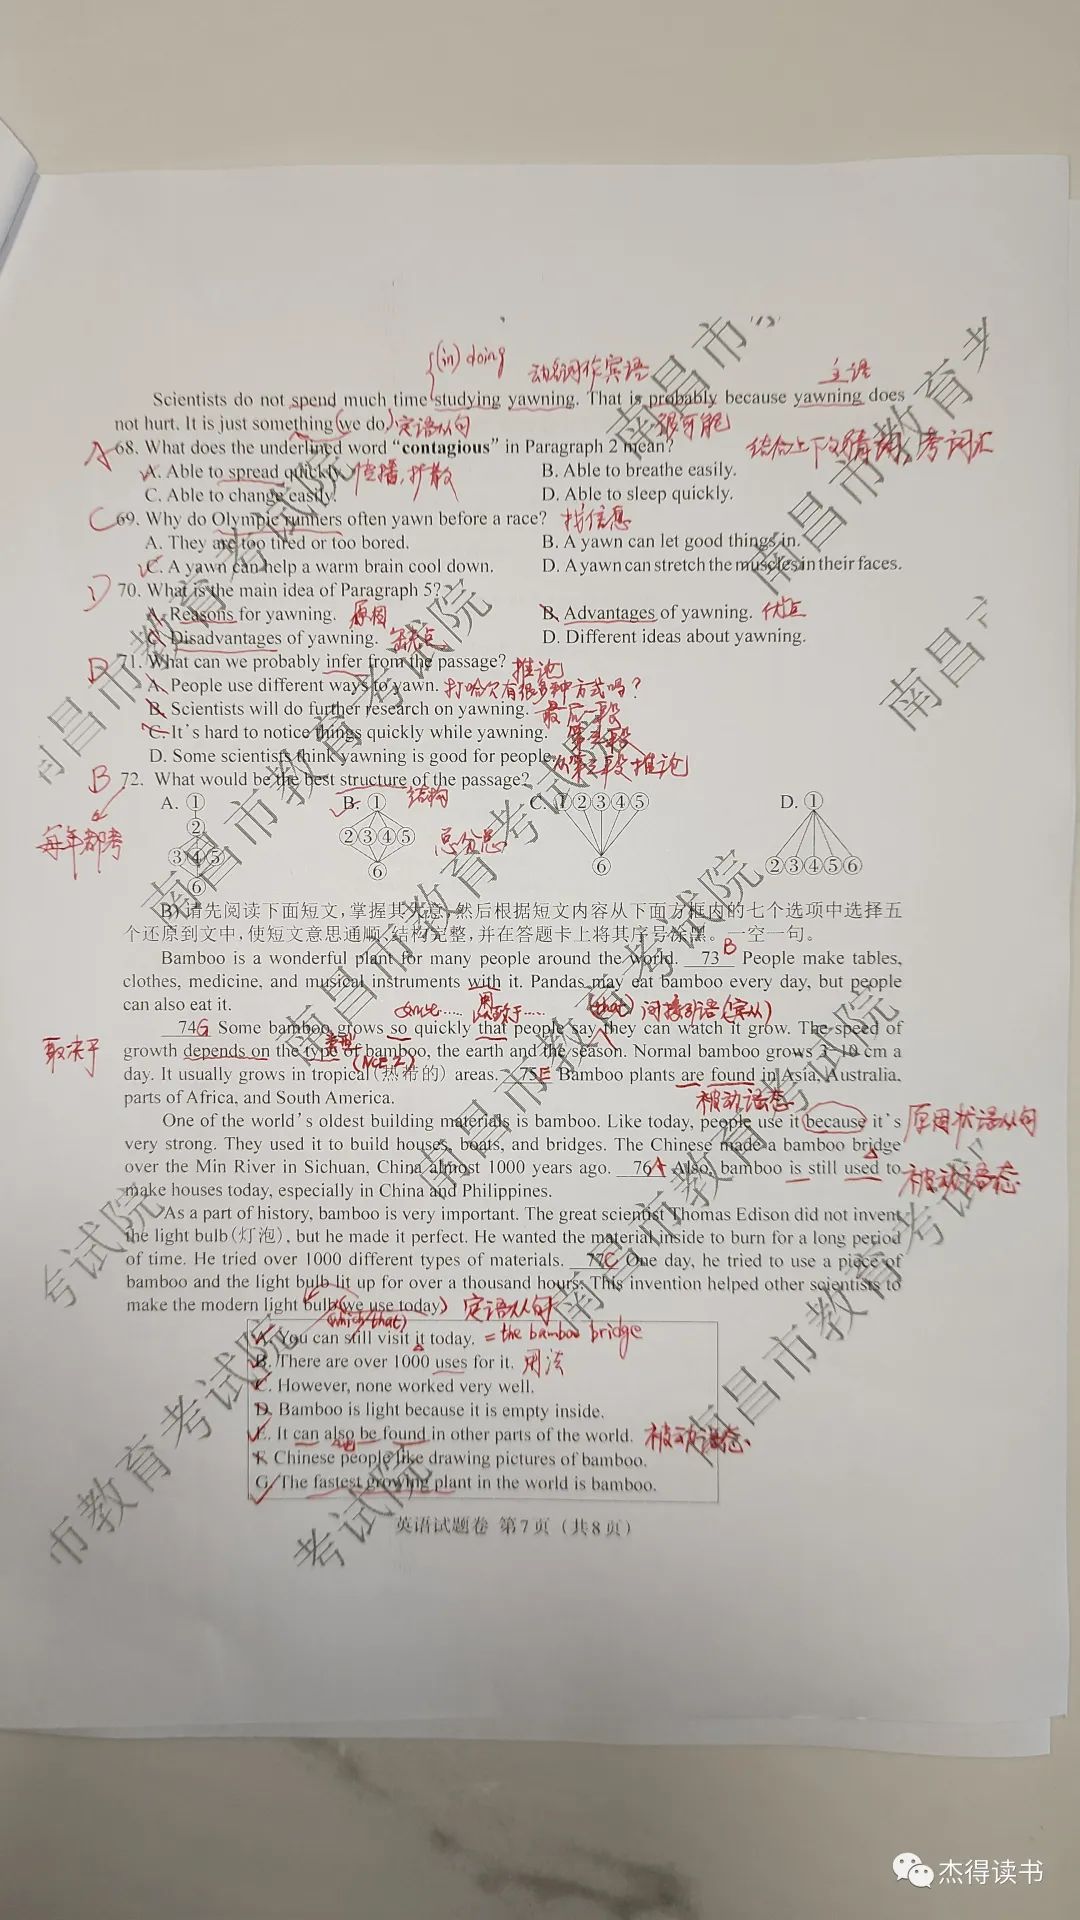 {(in) doing 动名词作宾语 主语
Scientists do not spend much time studying yawning. That is probably because yawning does
not hurt. It is just something (we do). 定语从句 很可能
A 68. What does the underlined word “contagious” in Paragraph 2 mean? 结合上下文猜词, 考词汇
A. Able to spread quickly. 传播, 扩散 B. Able to breathe easily.
C. Able to change easily. D. Able to sleep quickly.
C 69. Why do Olympic runners often yawn before a race? 找信息
A. They are too tired or too bored. B. A yawn can let good things in.
C. A yawn can help a warm brain cool down. D. A yawn can stretch the muscles in their faces.
D 70. What is the main idea of Paragraph 5?
A. Reasons for yawning. 原因 B. Advantages of yawning. 优点
C. Disadvantages of yawning. 缺点 D. Different ideas about yawning.
D 71. What can we probably infer from the passage? 推论
A. People use different ways to yawn. 打哈欠有很多种方式吗?
B. Scientists will do further research on yawning. 最后一段
C. It's hard to notice things quickly while yawning. 第三段
D. Some scientists think yawning is good for people. 从第三段推论
B 72. What would be the best structure of the passage? 结构
每年都考
A. ① B. ① C. ①②③④⑤ D. ①
②
③④⑤ ②③④⑤ 总分总 ②③④⑤⑥
⑥ ⑥ ⑥
B) 请先阅读下面短文,掌握其大意,然后根据短文内容从下面方框内的七个选项中选择五
个还原到文中,使短文意思通顺、结构完整,并在答题卡上将其序号涂黑。一空一句。
Bamboo is a wonderful plant for many people around the world. 73 B People make tables,
clothes, medicine, and musical instruments with it. Pandas may eat bamboo every day, but people
can also eat it. 用 (that) 间接引语(宾从)
74 G Some bamboo grows so quickly that people say they can watch it grow. The speed of
取决于 类型
growth depends on the type of bamboo, the earth and the season. Normal bamboo grows 3-10 cm a
day. It usually grows in tropical(热带的) areas. 75 E Bamboo plants are found in Asia, Australia,
parts of Africa, and South America. 被动语态
One of the world's oldest building materials is bamboo. Like today, people use it because it's 原因状语从句
very strong. They used it to build houses, boats, and bridges. The Chinese made a bamboo bridge
over the Min River in Sichuan, China almost 1000 years ago. 76 A Also, bamboo is still used to 被动语态
make houses today, especially in China and Philippines.
As a part of history, bamboo is very important. The great scientist Thomas Edison did not invent
the light bulb(灯泡), but he made it perfect. He wanted the material inside to burn for a long period
of time. He tried over 1000 different types of materials. 77 C One day, he tried to use a piece of
bamboo and the light bulb lit up for over a thousand hours. This invention helped other scientists to
make the modern light bulb (we use today) 定语从句
(which/that)
A. You can still visit it today. = the bamboo bridge
B. There are over 1000 uses for it. 用法
C. However, none worked very well.
D. Bamboo is light because it is empty inside.
E. It can also be found in other parts of the world. 被动语态
F. Chinese people like drawing pictures of bamboo.
G. The fastest growing plant in the world is bamboo.
英语试题卷 第7页 (共8页)
南昌市教育考试院
杰得读书